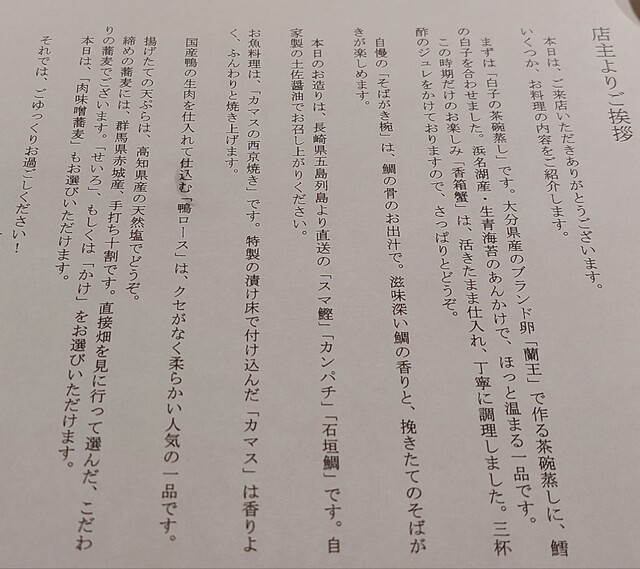 店主よりご挨拶
本日は、ご来店いただきありがとうございます。
いくつか、お料理の内容をご紹介します。
まずは「白子の茶碗蒸し」です。大分県産のブランド卵「蘭王」で作る茶碗蒸しに、鱈
の白子を合わせました。浜名湖産・生青海苔のあんかけで、ほっと温まる一品です。
この時期だけのお楽しみ「香箱蟹」は、活きたまま仕入れ、丁寧に調理しました。三杯
酢のジュレをかけておりますので、さっぱりとどうぞ。
自慢の「そばがき椀」は、鯛の骨のお出汁で。滋味深い鯛の香りと、挽きたてのそばが
きが楽しめます。
本日のお造りは、長崎県五島列島より直送の「スマ鰹」「カンパチ」「石垣鯛」です。自
家製の土佐醤油でお召し上がりください。
お魚料理は、「カマスの西京焼き」です。特製の漬け床で付け込んだ「カマス」は香りよ
く、ふんわりと焼き上げます。
国産鴨の生肉を仕入れて仕込む「鴨ロース」は、クセがなく柔らかい人気の一品です。
揚げたての天ぷらは、高知県産の天然塩でどうぞ。
締めの蕎麦には、群馬県赤城産、手打ち十割です。直接畑を見に行って選んだ、こだわ
りの蕎麦でございます。「せいろ」、もしくは「かけ」をお選びいただけます。
本日は、「肉味噌蕎麦」もお選びいただけます。
それでは、ごゆっくりお過ごしください！